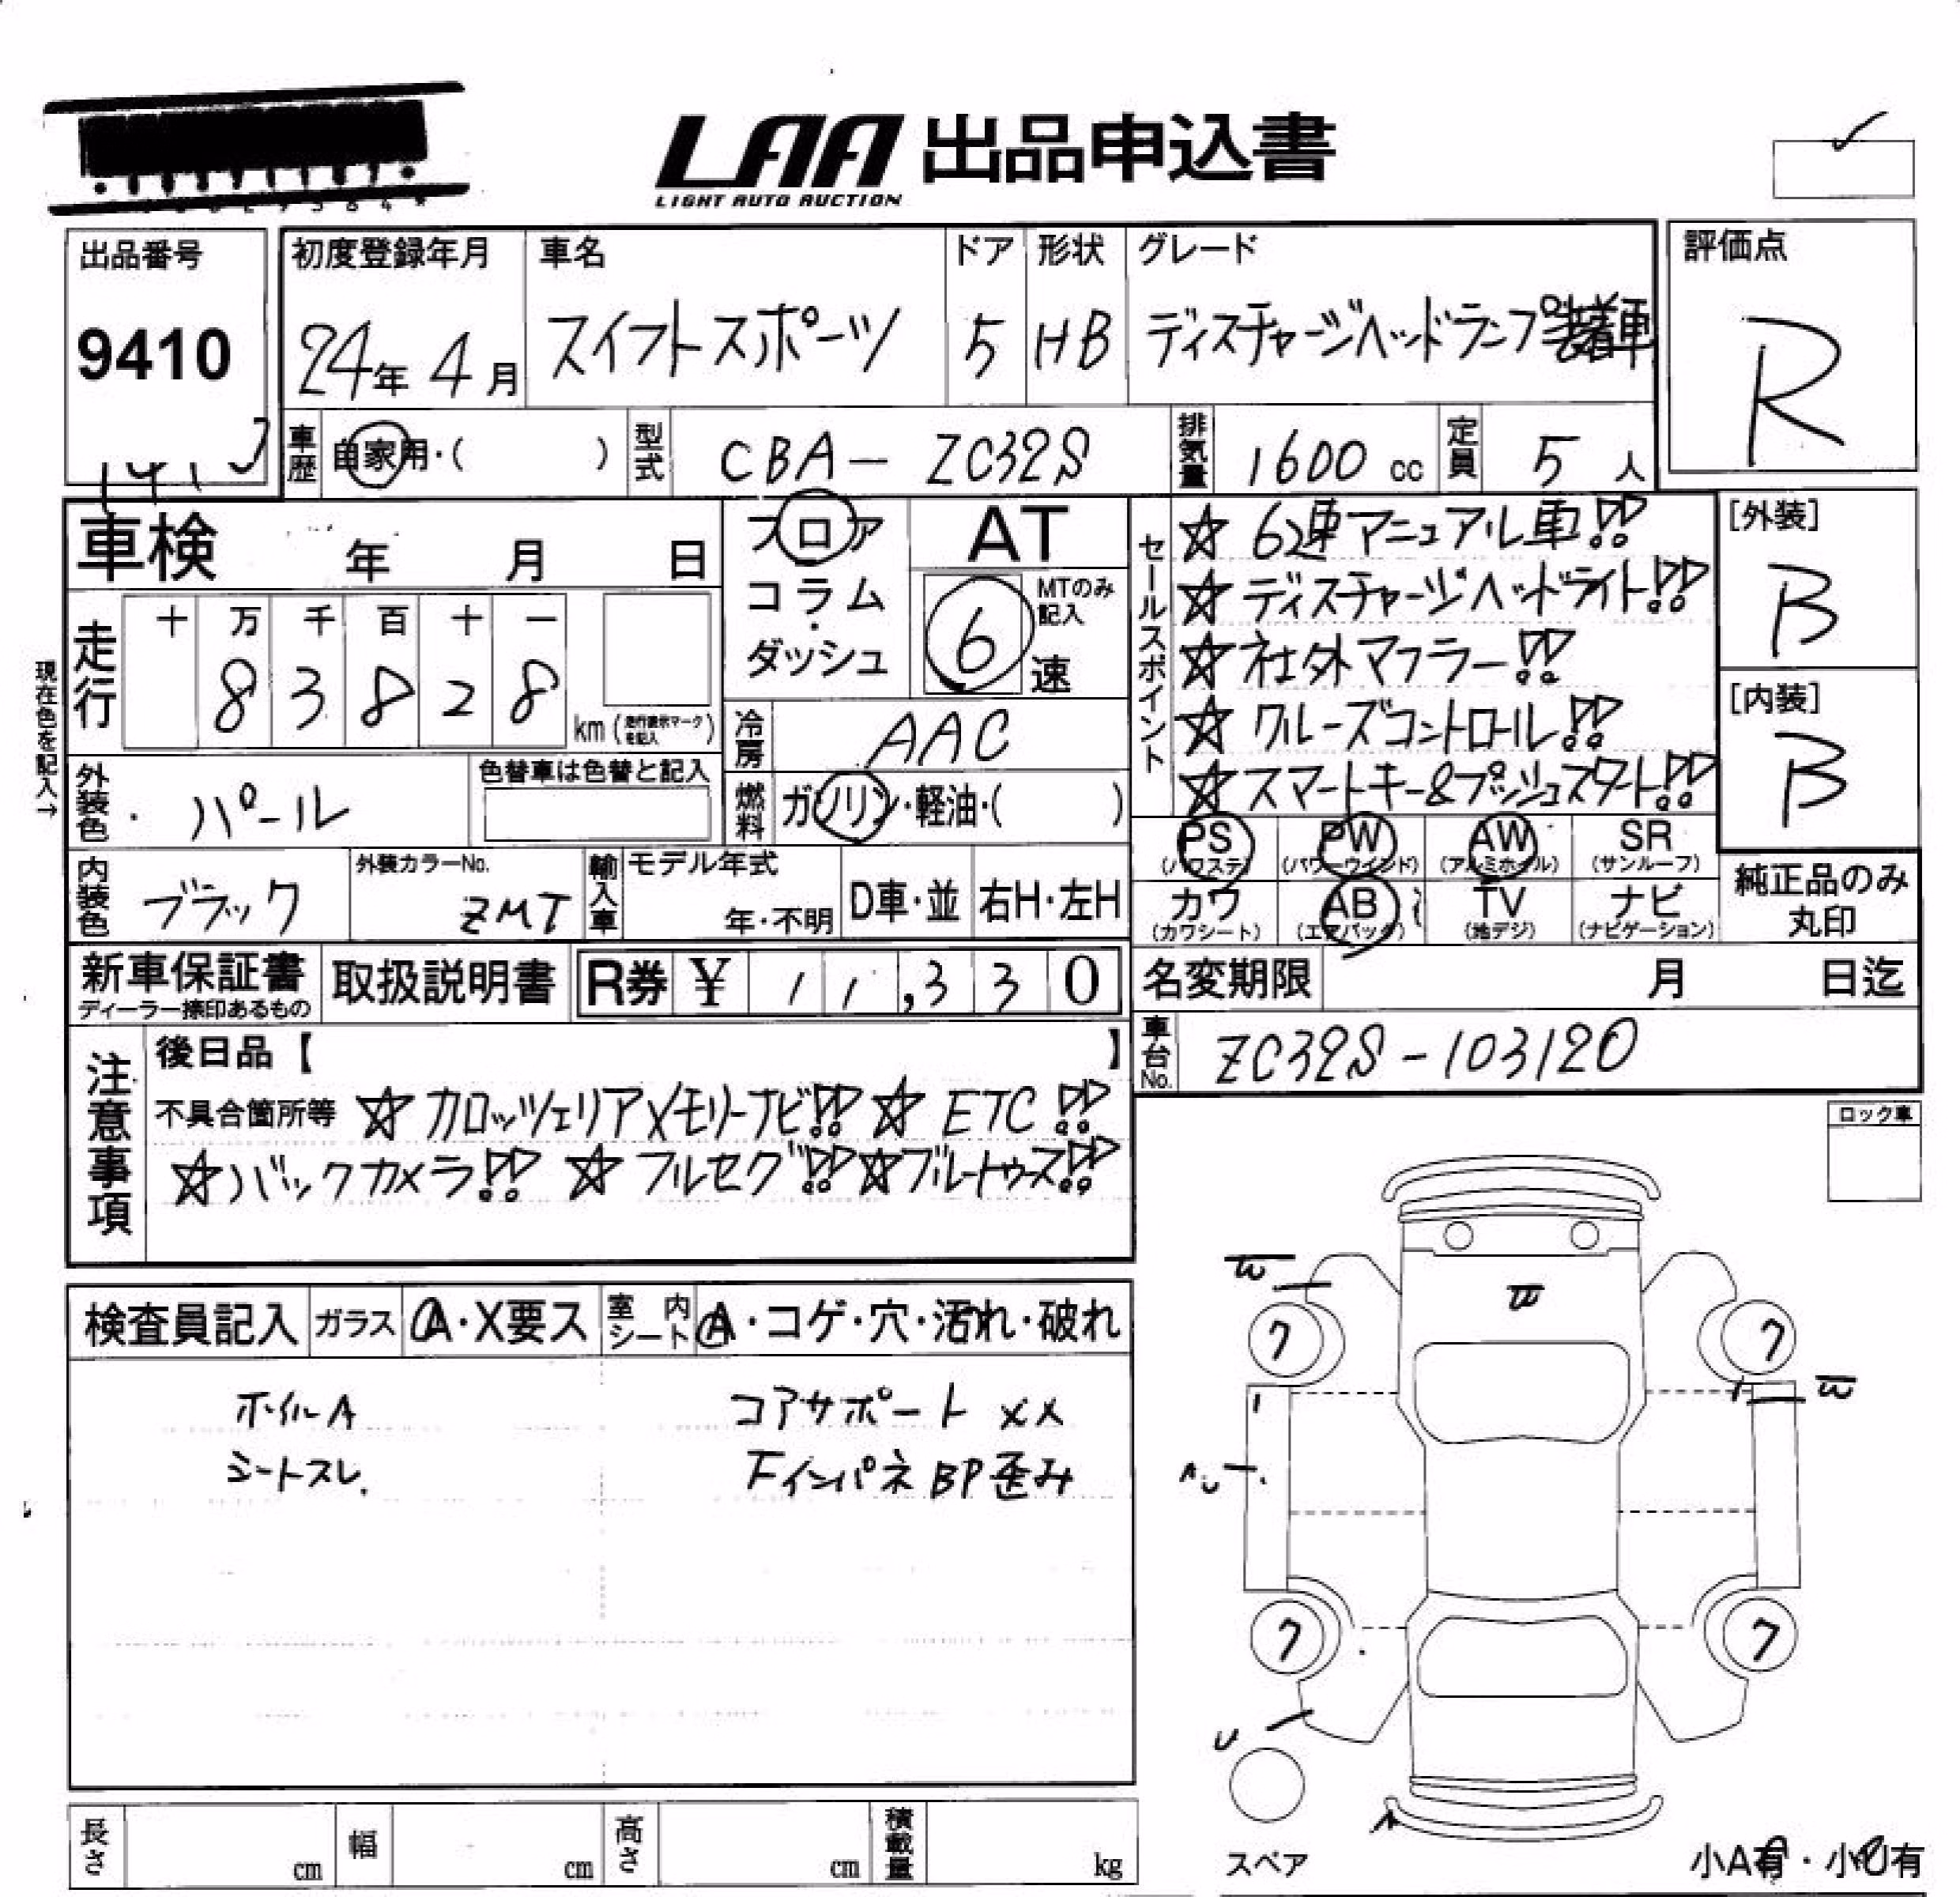 LAA 出品申込書
LIGHT AUTO AUCTION
出品番号
9410
初度登録年月
24年 4月
車名
スイフトスポーツ
ドア
5
形状
HB
グレード
ディスチャージヘッドランプ装着車
評価点
R
車歴
自家用・( )
型式
CBA-ZC32S
排気量
1600 cc
定員
5 人
車検 年 月 日
フロア
コラム・
ダッシュ
AT
MTのみ記入
6 速
セールスポイント
☆ 6速マニュアル車!!
☆ ディスチャージヘッドライト!!
☆ 社外マフラー!!
☆ クルーズコントロール!!
☆ スマートキー&プッシュスタート!!
[外装]
B
[内装]
B
現在色を記入→
走行
十 万 千 百 十 一
8 3 8 2 8
km (走行表示マークを記入)
冷房
AAC
外装色
パール
色替車は色替と記入
燃料
ガソリン・軽油・( )
PS (パワステ)
PW (パワーウインド)
AW (アルミホイル)
SR (サンルーフ)
カワ (カワシート)
AB (エアバッグ)
TV (地デジ)
ナビ (ナビゲーション)
純正品のみ
丸印
内装色
ブラック
外装カラーNo.
ZMT
輸入車
モデル年式
年・不明
D車・並
右H・左H
新車保証書
ディーラー捺印あるもの
取扱説明書
R券 ¥ 11,330
名変期限 月 日迄
車台No.
ZC32S-103120
注意事項
後日品【 】
不具合箇所等 ☆ カロッツェリアメモリーナビ!! ☆ ETC!!
☆バックカメラ!! ☆ フルセグ!! ☆ブルートゥース!!
ロック車
検査員記入
ガラス
A・X要ス
室内シート
A・コゲ・穴・汚れ・破れ
ホイルA
シートスレ.
コアサポート XX
FインパネBP歪み
W
W
W
ワ
ワ
ワ
ワ
U
A
スペア
小A有・小U有
長さ cm
幅 cm
高さ cm
積載量 kg